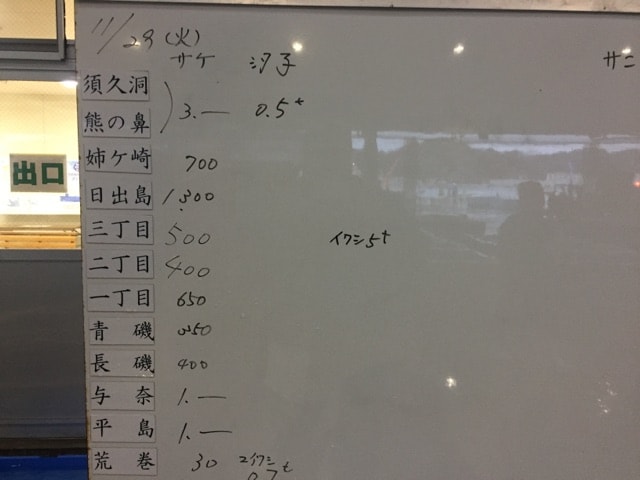 11/29(火)
サケ 汐子 サニ
須久洞
熊の鼻 3.— 0.5t
姉ケ崎 700
出口
日出島 1.300
三丁目 500 イワシ5t
二丁目 400
一丁目 650
青磯 350
長磯 400
与奈 1.—
平島 1.—
荒巻 30 コイワシ t
0.7